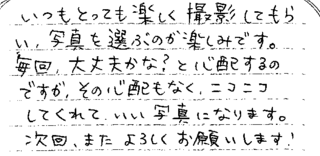 いつもとっても楽しく撮影してもら
い、写真を選ぶのが楽しみです。
毎回、大丈夫かな?と心配するの
ですが、その心配もなく、ニコニコ
してくれて、いい写真になります。
次回、また よろしくお願いします!